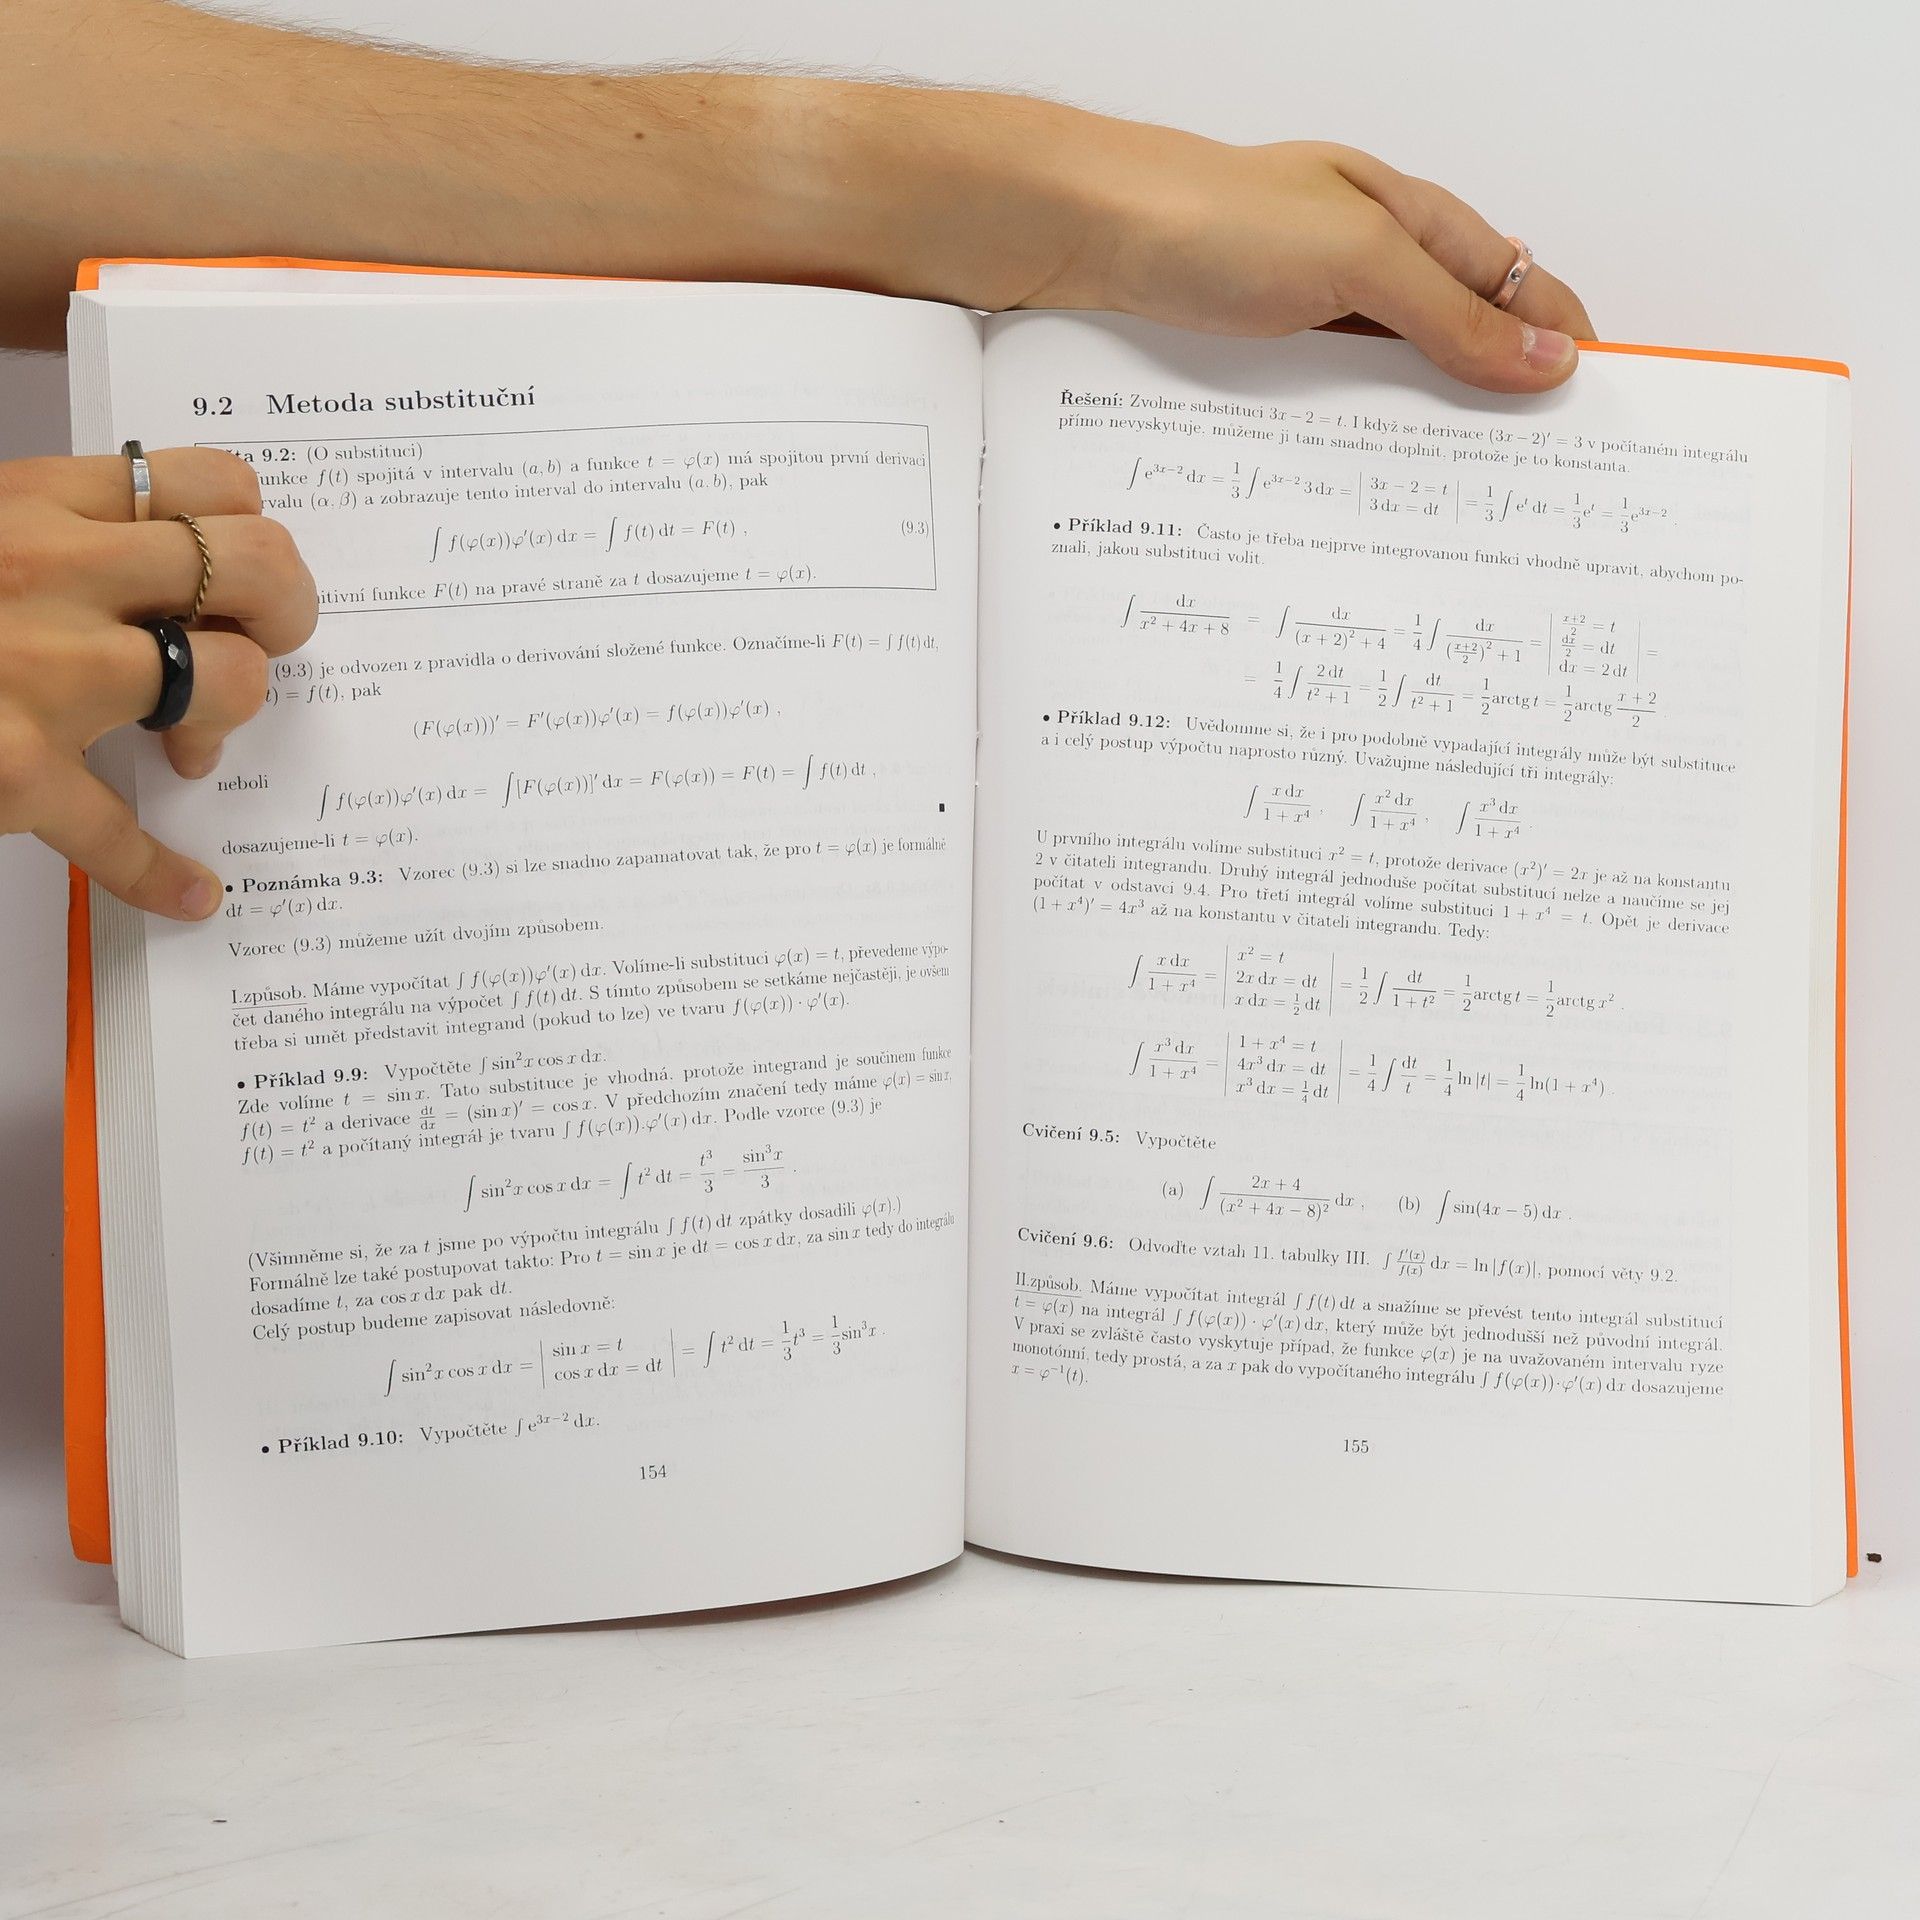 9.2 Metoda substituční
9.2: (O substituci)
funkce f(t) spojitá v intervalu (a, b) a funkce t = φ(x) má spojitou první derivaci
(α, β) a zobrazuje tento interval do intervalu (a, b), pak
∫ f(φ(x))φ′(x) dx = ∫ f(t) dt = F(t) , (9.3)
funkce F(t) na pravé straně za t dosazujeme t = φ(x).
(9.3) je odvozen z pravidla o derivování složené funkce. Označíme-li F(t) = ∫ f(t) dt,
= f(t), pak
(F(φ(x)))′ = F′(φ(x))φ′(x) = f(φ(x))φ′(x) ,
neboli
∫ f(φ(x))φ′(x) dx = ∫[F(φ(x))]′ dx = F(φ(x)) = F(t) = ∫ f(t) dt ,
dosazujeme-li t = φ(x).
• Poznámka 9.3: Vzorec (9.3) si lze snadno zapamatovat tak, že pro t = φ(x) je formálně
dt = φ′(x) dx.
Vzorec (9.3) můžeme užít dvojím způsobem.
I.způsob. Máme vypočítat ∫ f(φ(x))φ′(x) dx. Volíme-li substituci φ(x) = t, převedeme výpo-
čet daného integrálu na výpočet ∫ f(t) dt. S tímto způsobem se setkáme nejčastěji, je ovšem
třeba si umět představit integrand (pokud to lze) ve tvaru f(φ(x)) · φ′(x).
• Příklad 9.9: Vypočtěte ∫ sin²x cos x dx.
Zde volíme t = sin x. Tato substituce je vhodná, protože integrand je součinem funkce
f(t) = t² a derivace dt/dx = (sin x)′ = cos x. V předchozím značení tedy máme φ(x) = sin x,
f(t) = t² a počítaný integrál je tvaru ∫ f(φ(x)).φ′(x) dx. Podle vzorce (9.3) je
∫ sin²x cos x dx = ∫ t² dt = t³/3 = sin³x/3 .
(Všimněme si, že za t jsme po výpočtu integrálu ∫ f(t) dt zpátky dosadili φ(x).)
Formálně lze také postupovat takto: Pro t = sin x je dt = cos x dx, za sin x tedy do integrálu
dosadíme t, za cos x dx pak dt.
Celý postup budeme zapisovat následovně:
∫ sin²x cos x dx = | sin x = t ; cos x dx = dt | = ∫ t² dt = 1/3 t³ = 1/3 sin³x .
• Příklad 9.10: Vypočtěte ∫ e^(3x−2) dx.
154
Řešení: Zvolme substituci 3x − 2 = t. I když se derivace (3x − 2)′ = 3 v počítaném integrálu
přímo nevyskytuje, můžeme ji tam snadno doplnit, protože je to konstanta.
∫ e^(3x−2) dx = 1/3 ∫ e^(3x−2) 3 dx = | 3x − 2 = t ; 3 dx = dt | = 1/3 ∫ e^t dt = 1/3 e^t = 1/3 e^(3x−2) .
• Příklad 9.11: Často je třeba nejprve integrovanou funkci vhodně upravit, abychom po-
znali, jakou substituci volit.
∫ dx/(x² + 4x + 8) = ∫ dx/((x + 2)² + 4) = 1/4 ∫ dx/(((x+2)/2)² + 1) = | (x+2)/2 = t ; dx/2 = dt ; dx = 2 dt | =
= 1/4 ∫ 2 dt/(t² + 1) = 1/2 ∫ dt/(t² + 1) = 1/2 arctg t = 1/2 arctg (x + 2)/2 .
• Příklad 9.12: Uvědomme si, že i pro podobně vypadající integrály může být substituce
a i celý postup výpočtu naprosto různý. Uvažujme následující tři integrály:
∫ x dx/(1 + x⁴) , ∫ x² dx/(1 + x⁴) , ∫ x³ dx/(1 + x⁴) .
U prvního integrálu volíme substituci x² = t, protože derivace (x²)′ = 2x je až na konstantu
2 v čitateli integrandu. Druhý integrál jednoduše počítat substitucí nelze a naučíme se jej
počítat v odstavci 9.4. Pro třetí integrál volíme substituci 1 + x⁴ = t. Opět je derivace
(1 + x⁴)′ = 4x³ až na konstantu v čitateli integrandu. Tedy:
∫ x dx/(1 + x⁴) = | x² = t ; 2x dx = dt ; x dx = 1/2 dt | = 1/2 ∫ dt/(1 + t²) = 1/2 arctg t = 1/2 arctg x² .
∫ x³ dx/(1 + x⁴) = | 1 + x⁴ = t ; 4x³ dx = dt ; x³ dx = 1/4 dt | = 1/4 ∫ dt/t = 1/4 ln |t| = 1/4 ln(1 + x⁴) .
Cvičení 9.5: Vypočtěte
(a) ∫ (2x + 4)/(x² + 4x − 8)² dx , (b) ∫ sin(4x − 5) dx .
Cvičení 9.6: Odvoďte vztah 11. tabulky III. ∫ f′(x)/f(x) dx = ln |f(x)|, pomocí věty 9.2.
II.způsob. Máme vypočítat integrál ∫ f(t) dt a snažíme se převést tento integrál substitucí
t = φ(x) na integrál ∫ f(φ(x)) · φ′(x) dx, který může být jednodušší než původní integrál.
V praxi se zvláště často vyskytuje případ, že funkce φ(x) je na uvažovaném intervalu ryze
monotónní, tedy prostá, a za x pak do vypočítaného integrálu ∫ f(φ(x))·φ′(x) dx dosazujeme
x = φ⁻¹(t).
155